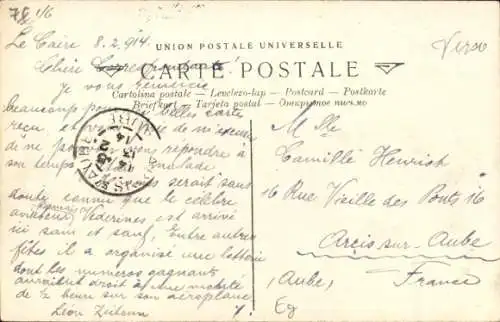 78 46
Le Caire 8.2.914.
Verso
UNION POSTALE UNIVERSELLE
CARTE POSTALE
Cartolina postale — Levelezo-lap — Postcard — Postkarte
Briefkort — Tarjeta postal — Открытое письмо
Chère Correspondante!
Je vous remercie
beaucoup pour les belles carte
reçu, et de n'avoir
de ne pas vous répondre à
son temps malade
serait sans
doute connu que le célèbre
aviateur Védrines est arrivé
ici sain et sauf, Entre autres
fêtes il a organisé une lotterie
dont les numeros gagnants
auraient droit à une
de ½ heur sur son aeroplane
Léon Zeitoun
Mlle
Camille Henriot
16 Rue Vieille des Ponts 16
Arcis-sur-Aube
(Aube) France
Eg